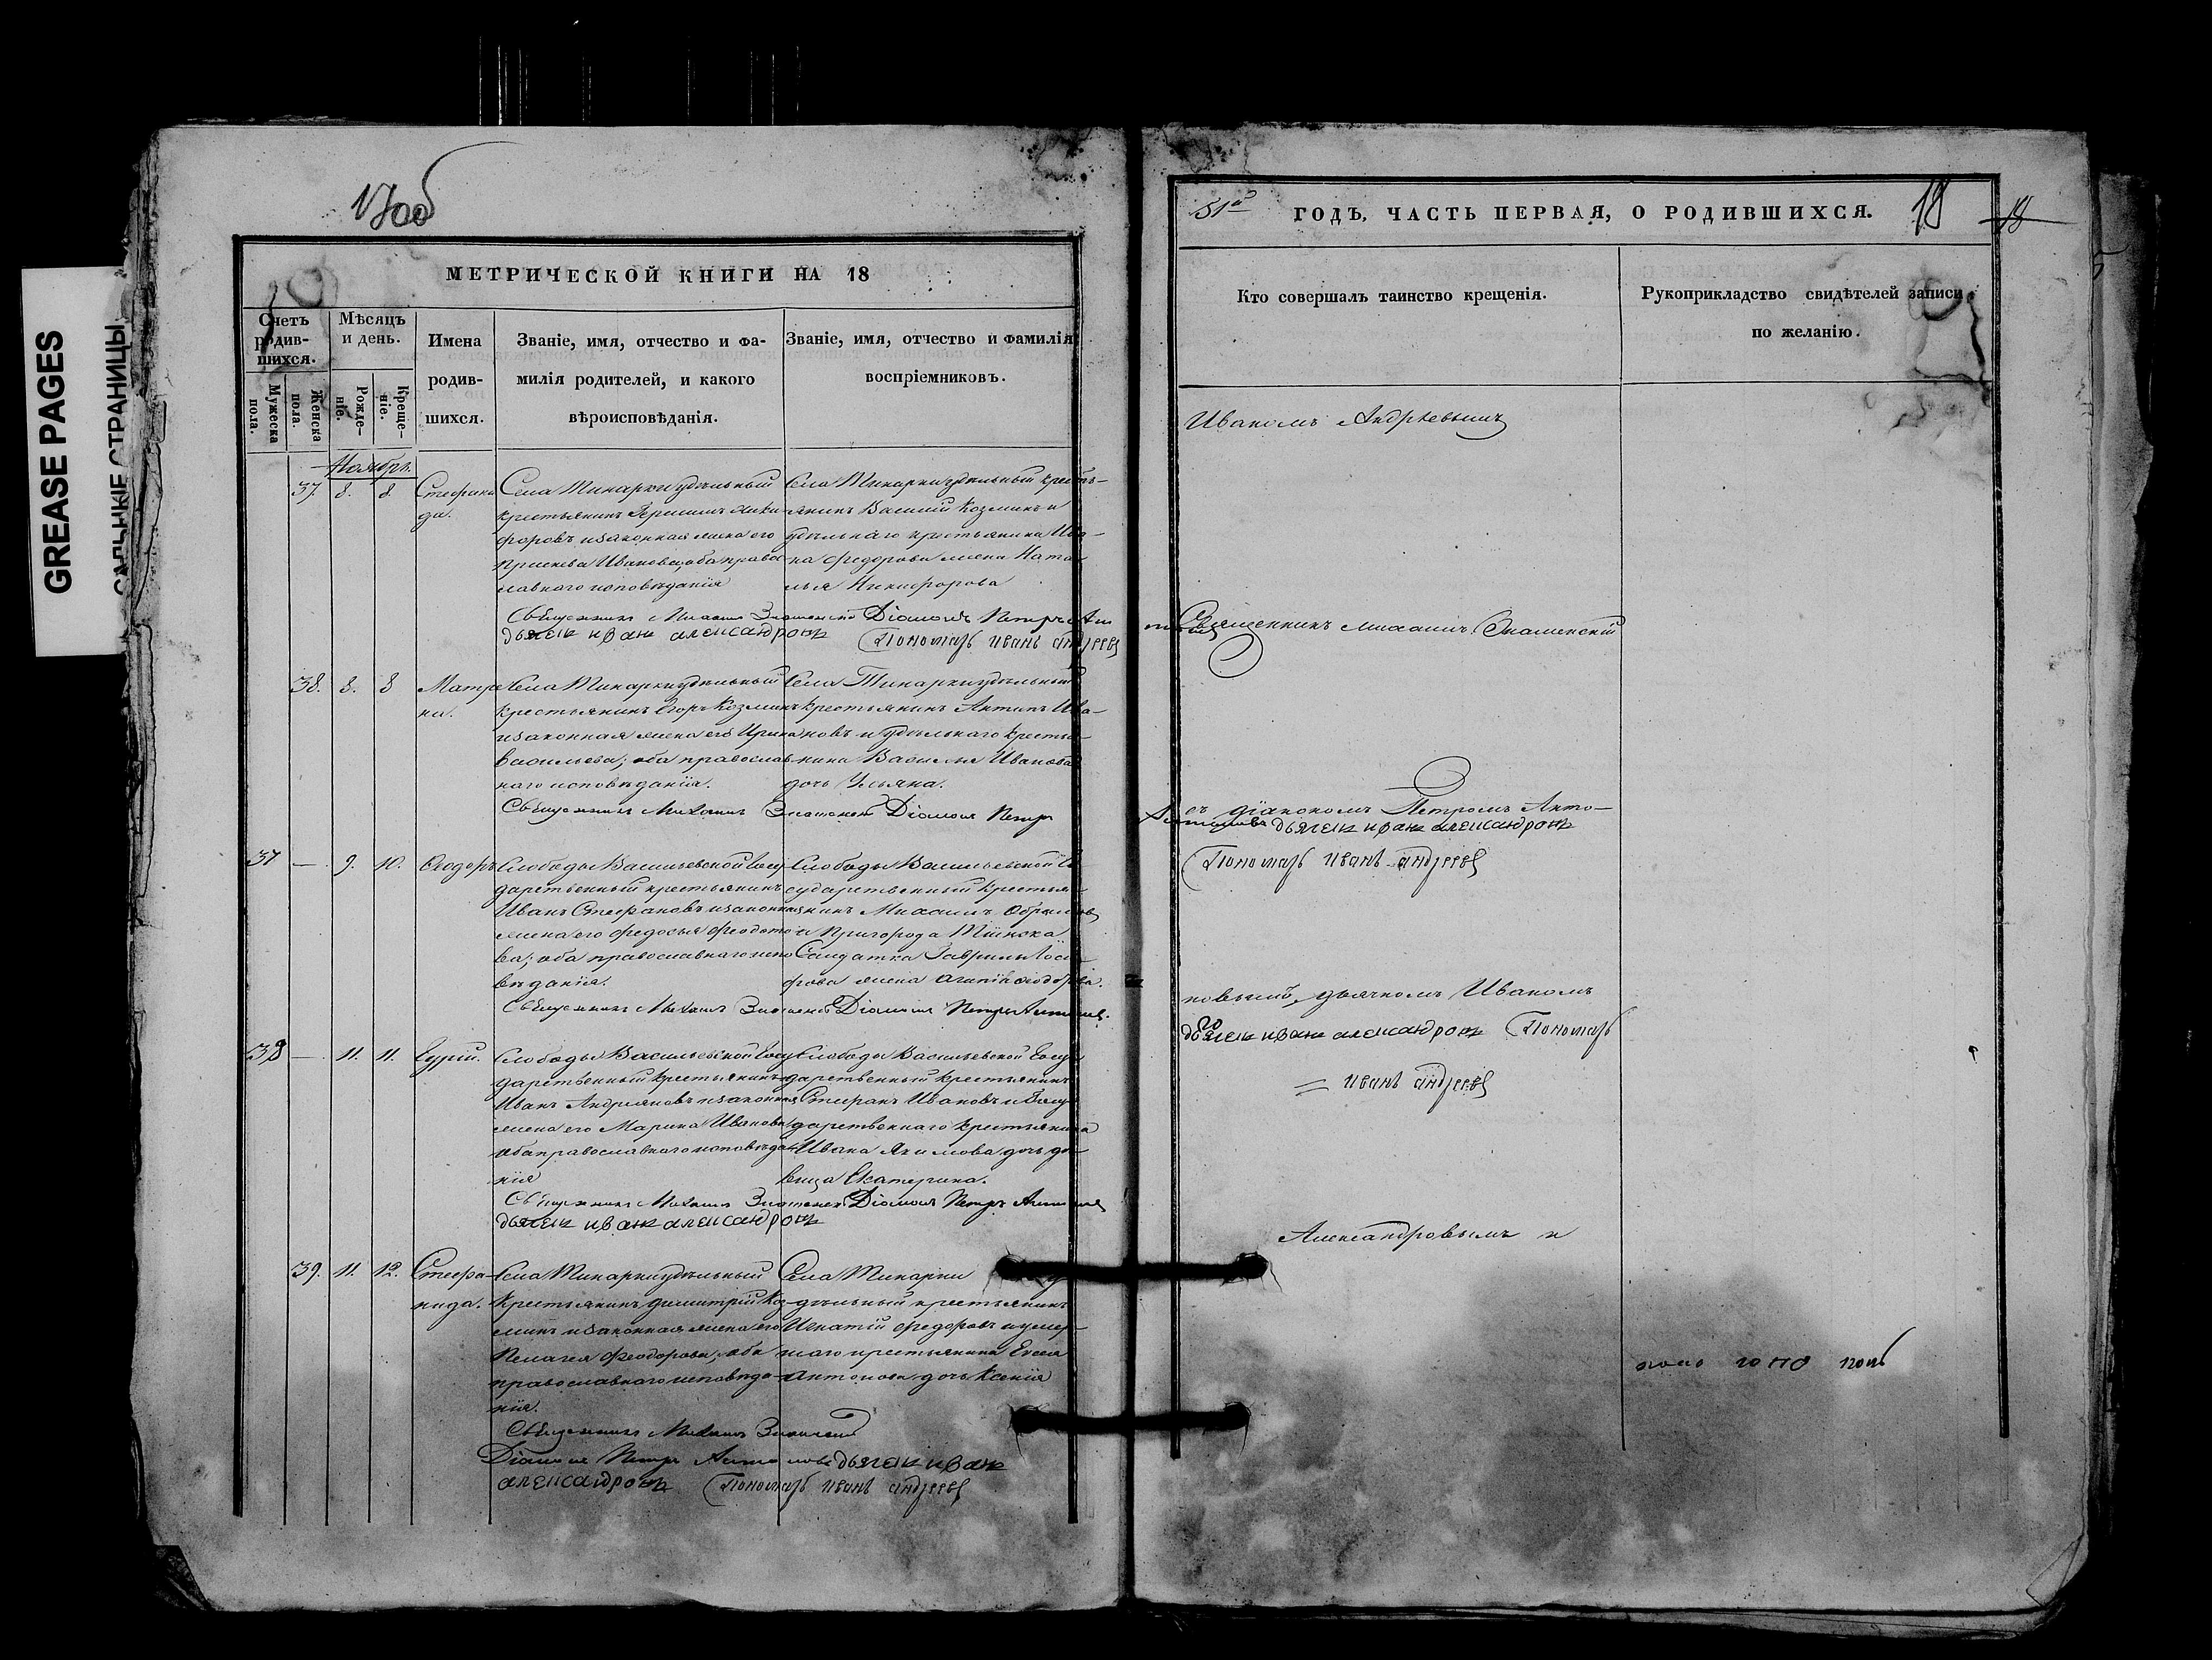 GREASE PAGES
САЛЬНЫЕ СТРАНИЦЫ
17об
МЕТРИЧЕСКОЙ КНИГИ НА 18
Счетъ родив-
шихся.
Мужеска пола.
Женска пола.
Мѣсяцъ и день.
Рожде-
ніе.
Креще-
ніе.
Имена
родив-
шихся.
Званіе, имя, отчество и фа-
милія родителей, и какого
вѣроисповѣданія.
Званіе, имя, отчество и фамилія
воспріемниковъ.
Ноябрь.
37. 8. 8. Стефани
да.
Села Тинарки удѣльный
крестьянинъ Герасимъ Ники
форовъ и законная жена его
Ивановна, оба право
славнаго исповѣданія
Села Тинарки удѣльный кресть-
янинъ Василій Козминъ и
удѣльнаго крестьянина Ива-
на Федорова жена Ната
лья Никифорова
Священникъ Михаилъ Знаменскій Діаконъ Петръ
дьячекъ иванъ александровъ Пономарь иванъ андреевъ
38. 8. 8 Матре
на.
Села Тинарки удѣльный
крестьянинъ Егоръ Козминъ
и законная жена его Ирина
Васильева; оба православ
наго исповѣданія.
Села Тинарки удѣльный
крестьянинъ Антипъ Ива-
новъ и удѣльнаго кресть
янина Василья Иванова
дочь Ульяна.
Священникъ Михаилъ Знаменскій Діаконъ Петръ
37 — 9. 10. Ѳеодоръ
Слободы Васильевской Госу
дарственный крестьянинъ
Иванъ Стефановъ и законная
жена его Федосья Феодото
ва; оба православнаго испо
вѣданія.
Слободы Васильевской Го
сударственный крестья
нинъ Михаилъ
и Пригорода Тіинска
Салдатка Гаврилы
жена
Священникъ Михаилъ Знаменскій Діаконъ Петръ Антоновъ.
38 — 11. 11. Гурій.
Слободы Васильевской Госу
дарственный крестьянинъ
Иванъ Андреяновъ и законная
жена его Марина Иванова
оба православнаго исповѣда
нія
Слободы Васильевской Госу
дарственный крестьянинъ
Стефанъ Ивановъ и Госу
дарственнаго крестьянина
Ивана Якимова дочь дѣ
вица Екатерина.
Священникъ Михаилъ Знаменскій Діаконъ Петръ Антоновъ
дьячекъ иванъ александровъ
39. 11. 12. Стефа-
нида.
Села Тинарки удѣльный
крестьянинъ Димитрій Коз-
минъ и законная жена его
Пелагея Феодорова, оба
православнаго исповѣда-
нія.
Села Тинарки у
дѣльный крестьянинъ
Игнатій Федоровъ и умер
шаго крестьянина
Антонова дочь Ксенія
Священникъ Михаилъ Знаменскій
Діаконъ Петръ Антоновъ дьячекъ иванъ
александровъ Пономарь иванъ андреевъ
51й ГОДЪ, ЧАСТЬ ПЕРВАЯ, О РОДИВШИХСЯ. 18
18
Кто совершалъ таинство крещенія.
Рукоприкладство свидѣтелей записи
по желанію.
Иваномъ Андрѣевымъ
Священникъ Михаилъ Знаменскій
съ діакономъ Петромъ Анто-
Антоновъ дьячекъ иванъ александровъ
Пономарь иванъ андреевъ
новымъ, дьячкомъ Иваномъ
дьячекъ иванъ александровъ Пономарь
иванъ андреевъ
Александровымъ и